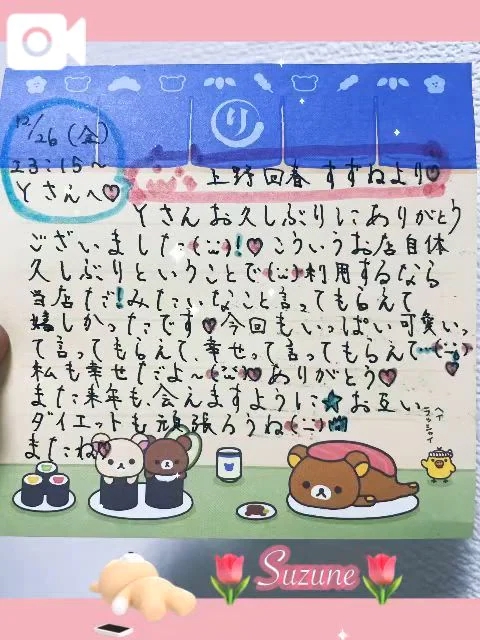 り
12/26(金)
23:15～
Yさんへ♡
上野回春 すずねより♡
Yさんお久しぶりにありがとう
ございました(¨)!♡こういうお店自体
久しぶりということで(¨)利用するなら
当店だ!みたいなこと言ってもらえて
嬉しかったです♡今回もいっぱい可愛いっ
て言ってもらえて、幸せって言ってもらえて…(¨)♡
私も幸せだよ～(¨)♡ありがとう♡
また来年も会えますように★お互い
ダイエットも頑張ろうね(¨)
またね♡
ヘイ
ラッシャイ
Suzune